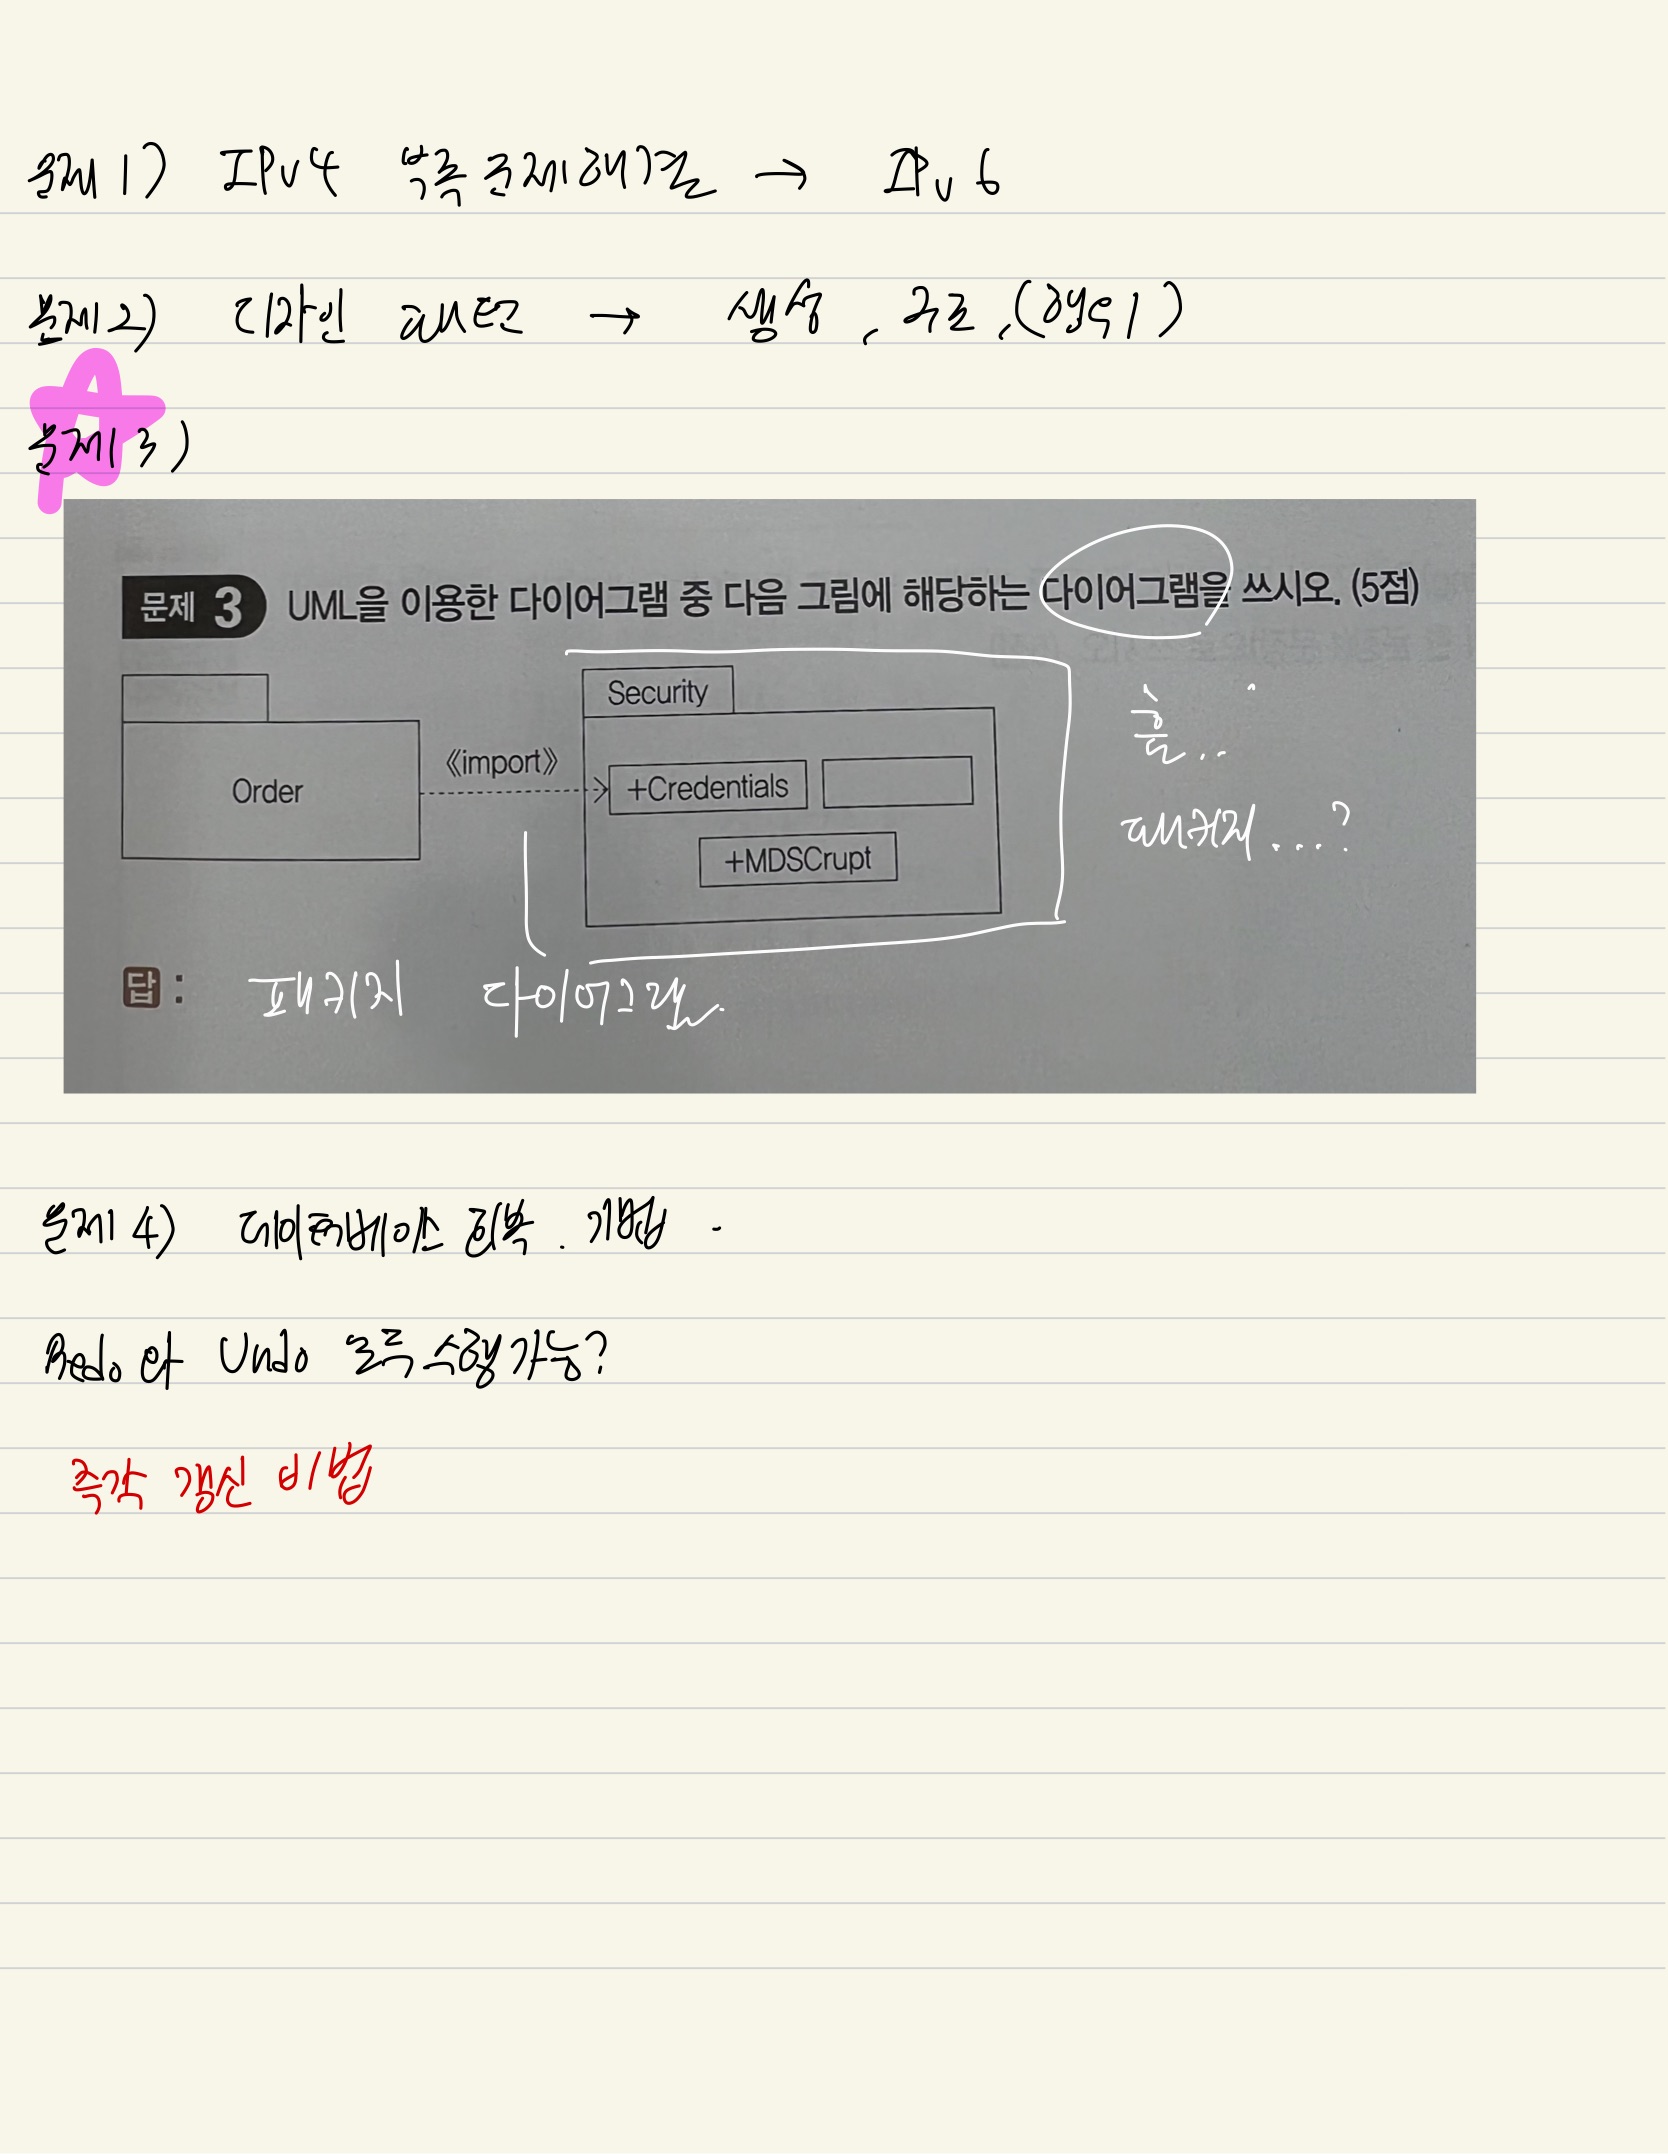 문제 1) IPv4 부족 문제해결 → IPv6
문제 2) 디자인 패턴 → 생성, 구조, (행위)
문제 3)
문제 3 UML을 이용한 다이어그램 중 다음 그림에 해당하는 다이어그램을 쓰시오. (5점)
Security
흠..
《import》
Order
+Credentials
패키지....?
+MDSCrupt
답 : 패키지 다이어그램.
문제 4) 데이터베이스 회복. 기법.
Redo와 Undo 모두 수행가능?
즉각 갱신 비법